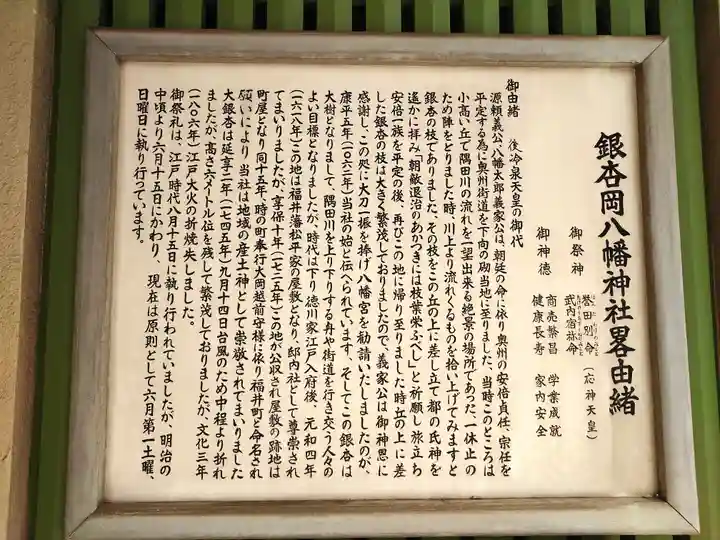 銀杏岡八幡神社畧由緒
御祭神
誉田別命（応神天皇）
武内宿祢命
御神徳
商売繁昌　学業成就
健康長寿　家内安全
御由緒　後冷泉天皇の御代
源頼義公、八幡太郎義家公は、朝廷の命に依り奥州の安倍貞任、宗任を
平定する為に奥州街道を下向の砌当地に至りました、当時このところは
小高い丘で隅田川の流れを一望出来る絶景の場所であった、一休止の
ため陣をとりました時、川上より流れくるものを拾い上げてみますと
銀杏の枝でありました、その枝をこの丘の上に差し立て都の氏神を
遙かに拝み「朝敵退治のあかつきには枝葉栄ふべし」と祈願し旅立ち
安倍一族を平定の後、再びこの地に帰り至りました時丘の上に差
した銀杏の枝は大きく繁茂しておりましたので、義家公は御神恩に
感謝し、この処に大刀一振を捧げ八幡宮を勧請いたしましたのが、
康平五年（一〇六二年）当社の始と伝へられています、そしてこの銀杏は
大樹となりまして、隅田川を上り下りする舟や街道を行き交う人々の
よい目標となりましたが、時代は下り徳川家江戸入府後、元和四年
（一六一八年）この地は福井藩松平家の屋敷となり、邸内社として尊崇され
てまいりましたが、享保十年（一七二五年）この地が公収され屋敷の跡地は
町屋となり同十五年、時の町奉行大岡越前守様に依り福井町と命名され
願いにより当社は地域の産土神として崇敬されてまいりました
大銀杏は延享二年（一七四五年）九月十四日台風のため中程より折れ
ましたが、高さ六メートル位を残して繁茂しておりましたが、文化三年
（一八〇六年）江戸大火の折焼失しました。
御祭礼は、江戸時代八月十五日に執り行われていましたが、明治の
中頃より六月十五日にかわり、現在は原則として六月第一土曜、
日曜日に執り行っています。